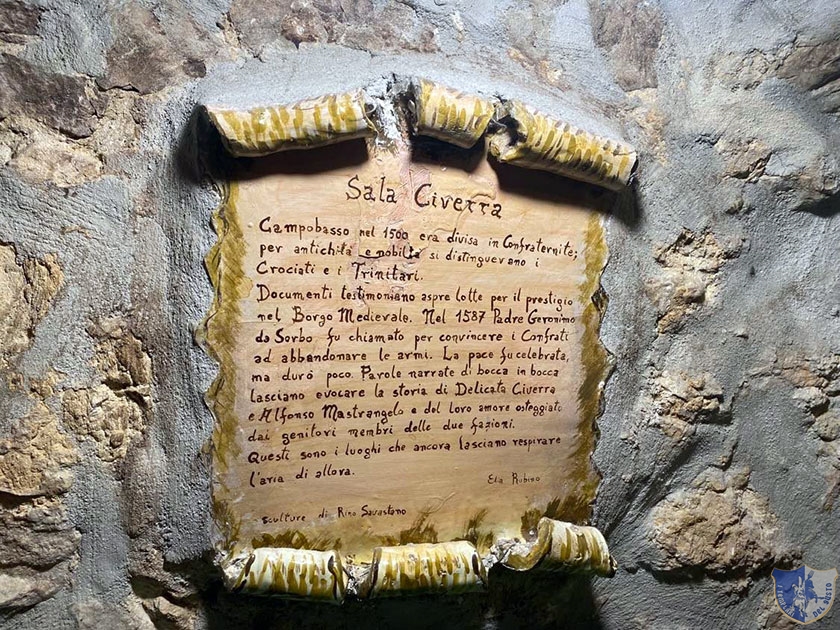 Sala Civerra
Campobasso nel 1500 era divisa in Confraternite;
per antichità e nobiltà si distinguevano i
Crociati e i Trinitari.
Documenti testimoniano aspre lotte per il prestigio
nel Borgo Medievale. Nel 1587 Padre Geronimo
da Sorbo fu chiamato per convincere i Confrati
ad abbandonare le armi. La pace fu celebrata,
ma durò poco. Parole narrate di bocca in bocca
lasciano evocare la storia di Delicata Civerra
e Alfonso Mastrangelo e del loro amore osteggiato
dai genitori membri delle due fazioni.
Questi sono i luoghi che ancora lasciano respirare
l'aria di allora.
Ela Rubino
sculture di Rino Savastano
DEL GUSTO